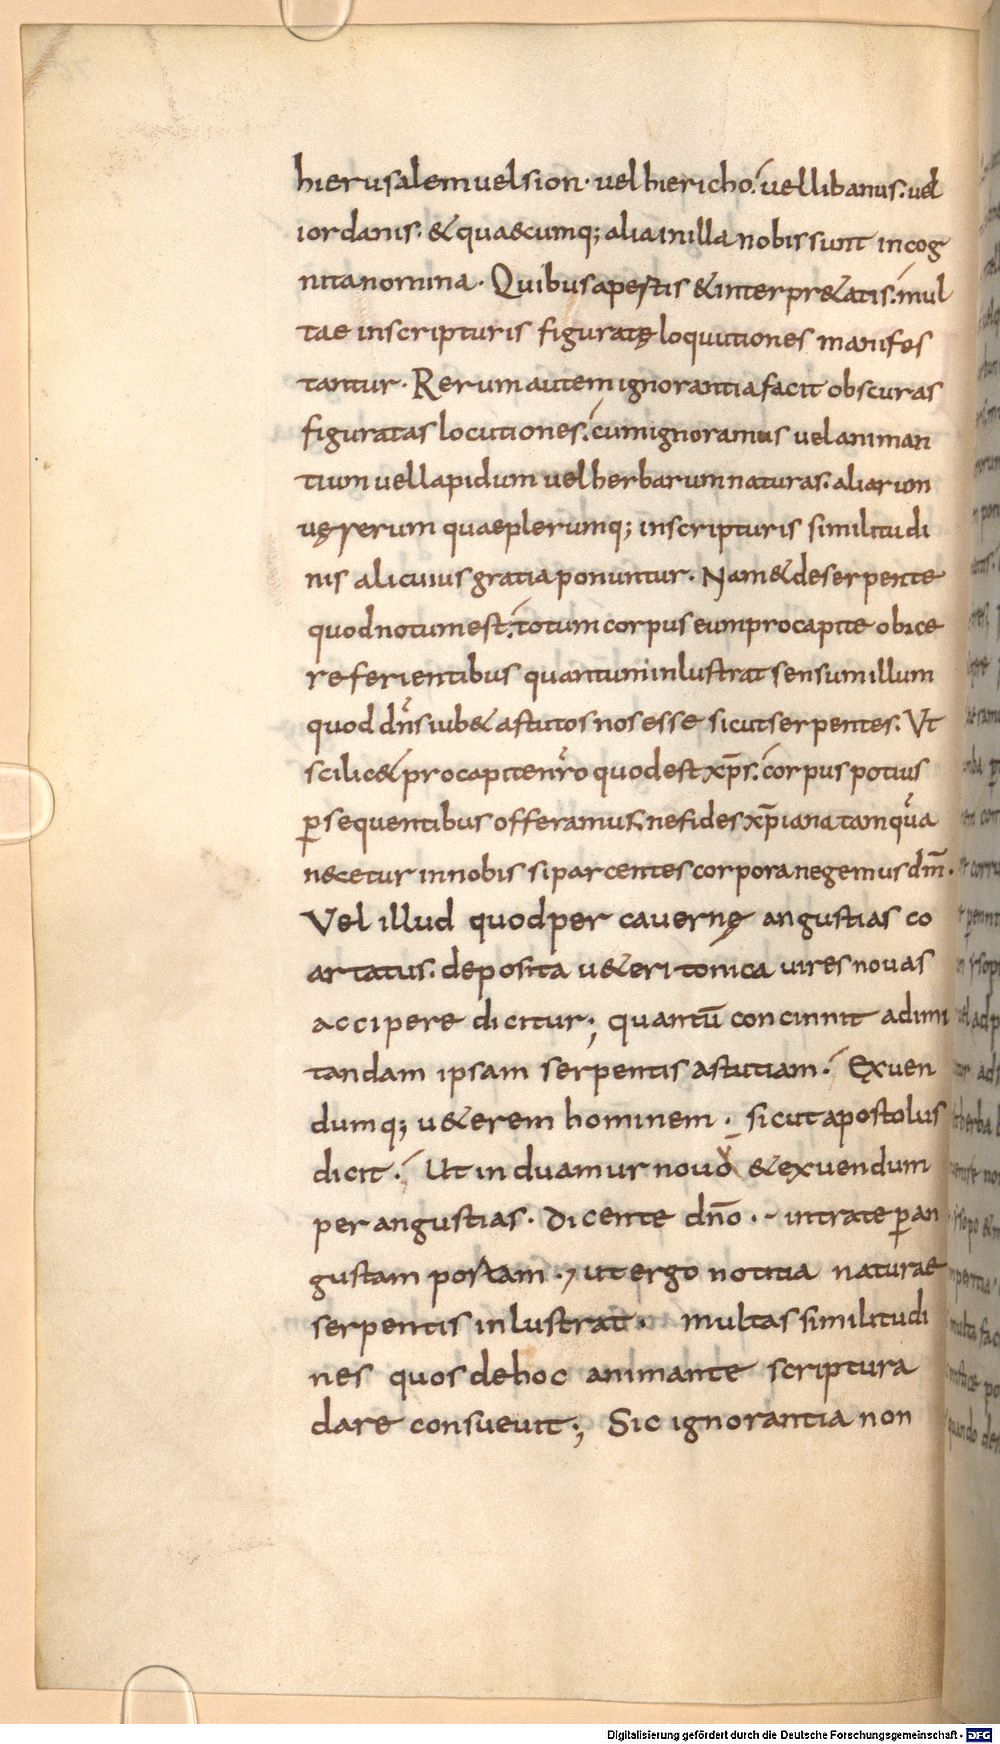 hierusalem uel sion· uel hiericho. uel libanus. uel
iordanis. & quaecumq; alia in illa nobis sunt incog
nita nomina· Quibus apertis & interpr&atis. mul
tae in scripturis figuratę loquutiones manifes
tantur· Rerum autem ignorantia facit obscuras
figuratas locutiones. cum ignoramus uel animan
tium uel lapidum uel herbarum naturas. aliarum
uę rerum quae plerumq; in scripturis similitudi
nis alicuius gratia ponuntur· Nam & de serpente
quod notum est. totum corpus eum pro capite obice
re ferientibus quantum inlustrat sensum illum
quod dn̄s iub& astutos nos esse sicut serpentes. Ut
scilic& pro capite nr̄o quod est xp̄s. corpus potius
p̱sequentibus offeramus, ne fides xp̄iana tamquā
nec&ur in nobis si parcentes corpora negemus dm̄·
Vel illud quod per cavernę angustias co
artatus. deposita u&eri tonica uires nouas
accipere dicitur; quantū concinnit ad imi
tandam ipsam serpentis astutiam· Exuen
dumq; u&erem hominem · sicut apostolus
dicit· Ut induamur nouo & exuendum
per angustias· dicente dn̄o · - intrate p̱ an
gustam portam ·, ut ergo notitia naturae
serpentis inlustrat· multas similitudi
nes quos de hoc animante scriptura
dare consueuit; Sic ignorantia non
Digitalisierung gefördert durch die Deutsche Forschungsgemeinschaft - DFG